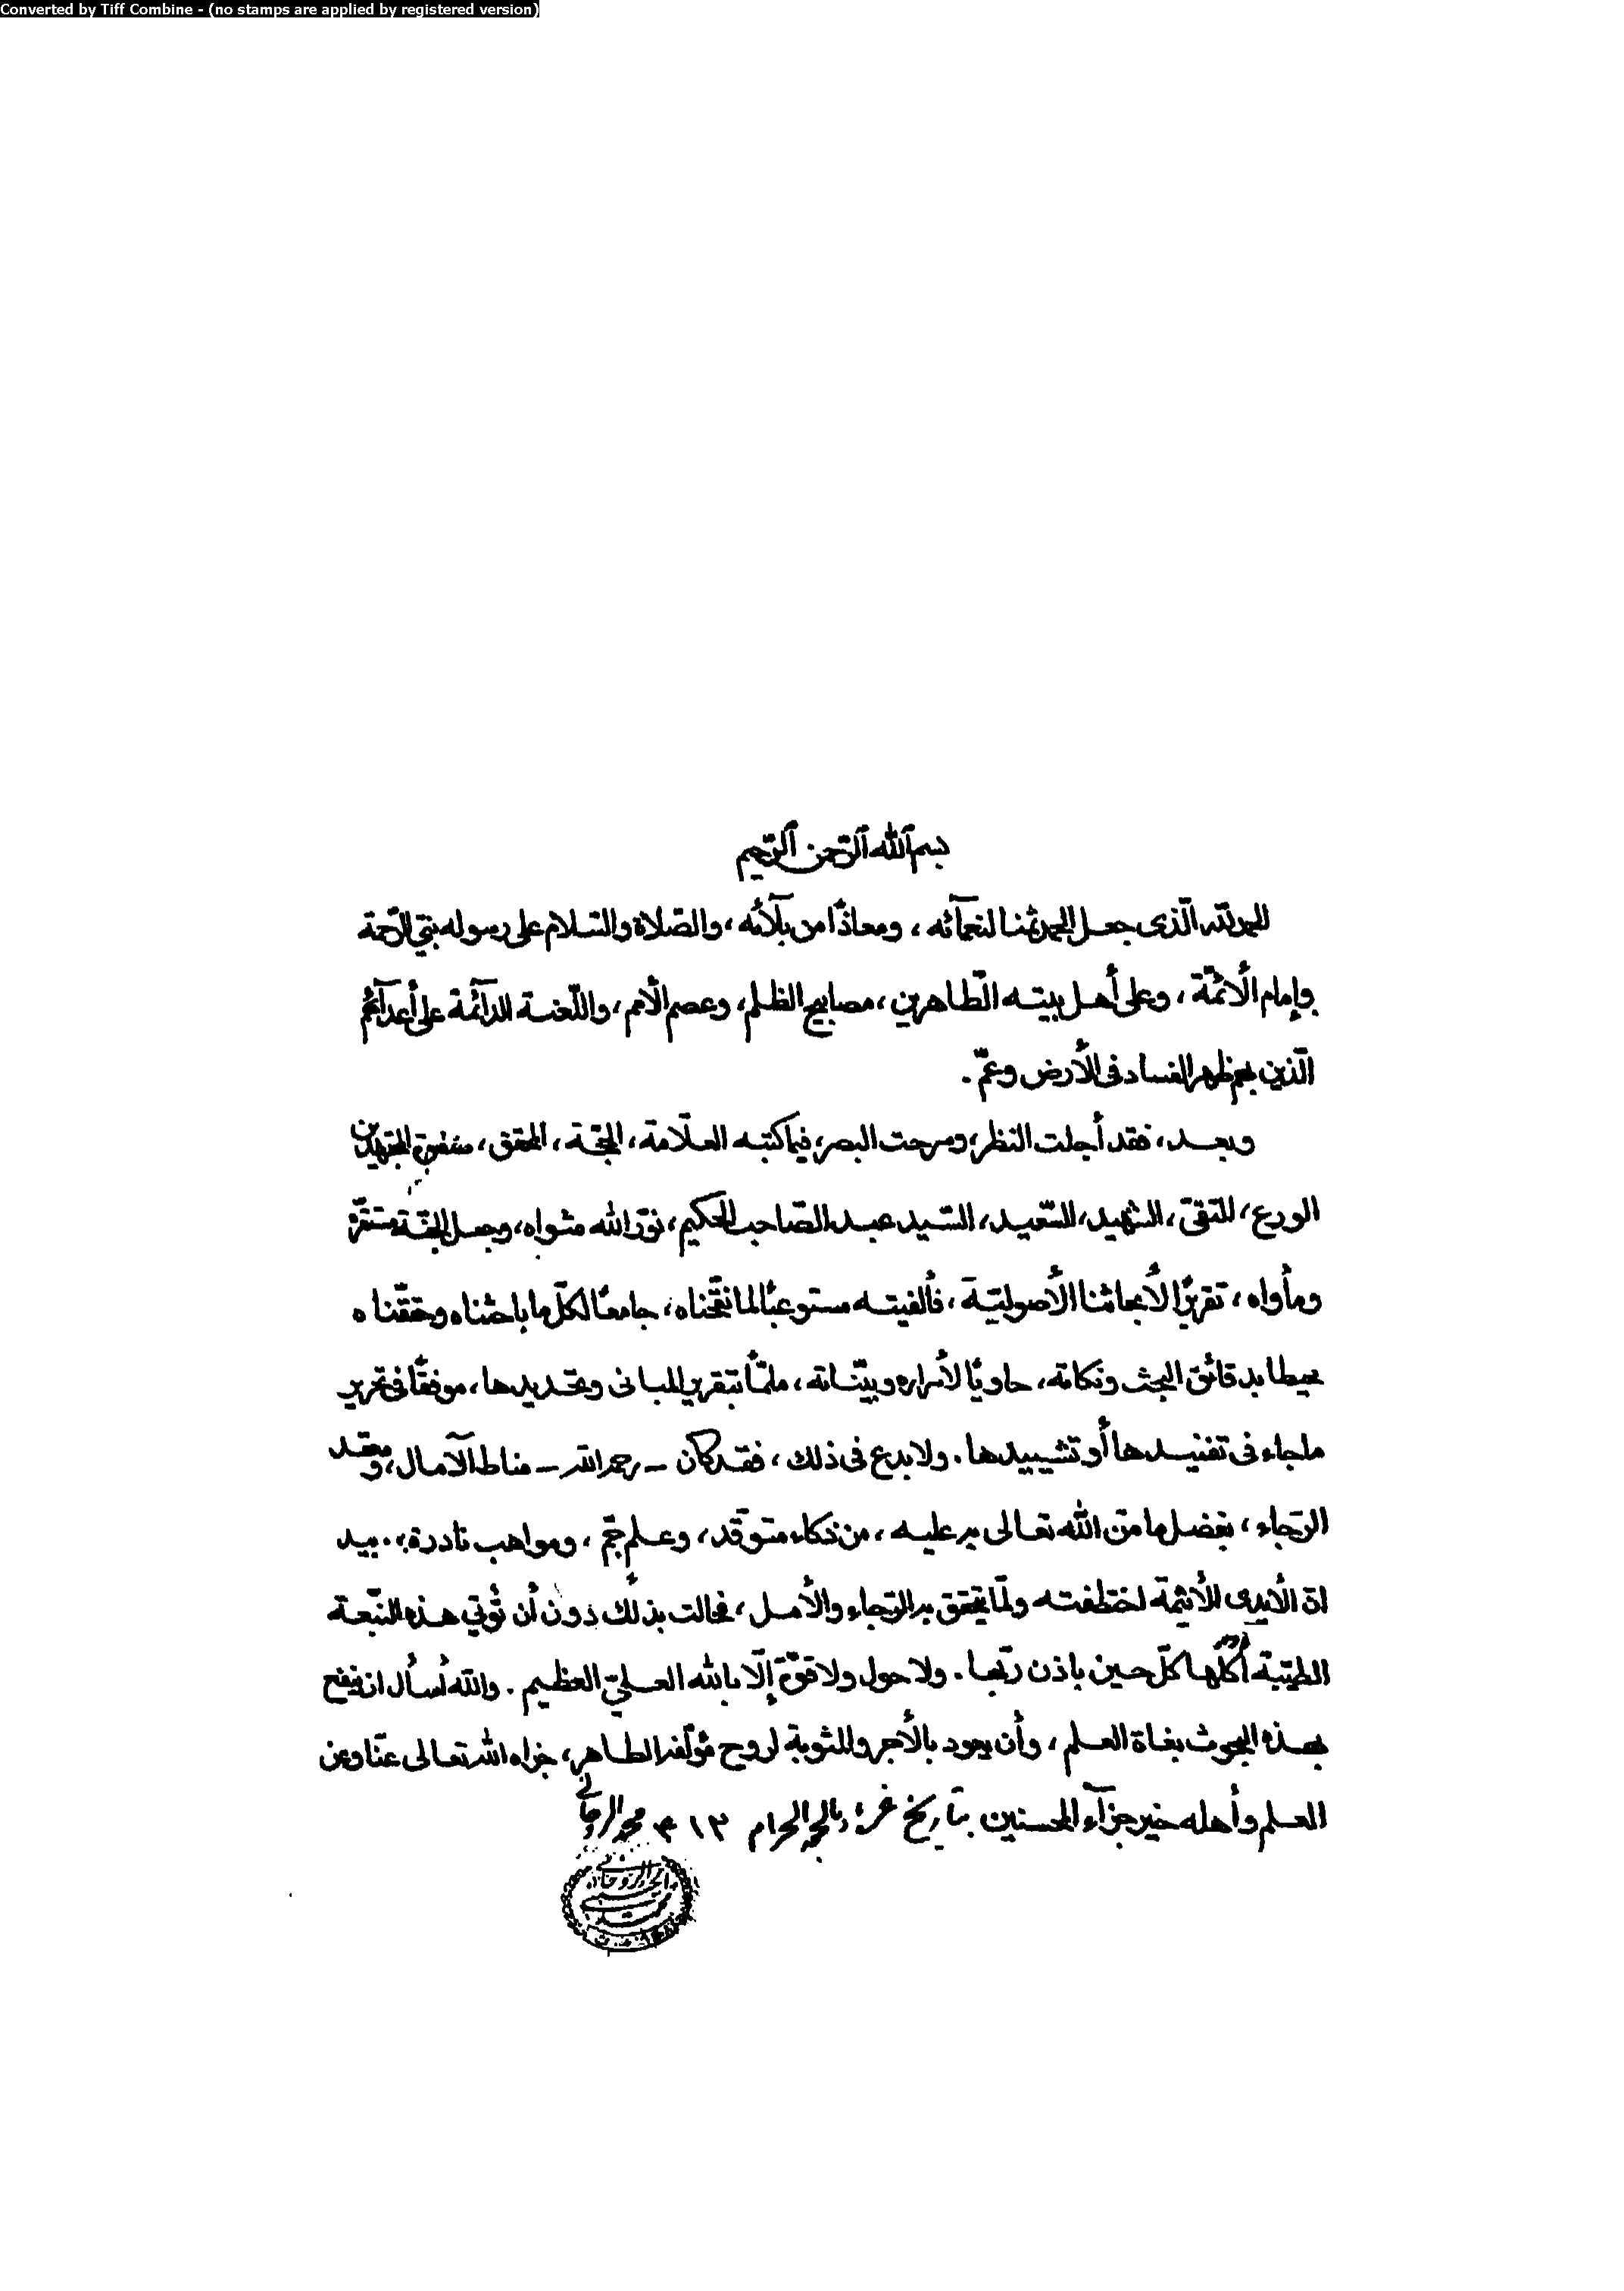 Converted by Tiff Combine - (no stamps are applied by registered version)
بسم ٱلله ٱلرّحمن ٱلرّحيم
الحمد لله الّذى جعل الحمد ثمنا لنعمآئه ، ومعاذًا من بلآئه ، والصّلاة والسّلام على رسوله نبيّ الرّحمة
وإمام الأئمّة ، وعلى أهل بيته الطّاهرين ، مصابيح الظلم، وعصم الأمم ، واللّعنة الدّآئمة على أعدآئهم
الّذين بهم ظهر الفساد فى الأرض وعمّ .
وبعد ، فقد أجلت النظر، وسرحت البصر، فيما كتبه العلّامة ، الحجّة ، المحقق ، صفوة المجتهدين
الورع ، التقيّ ، الشهيد، السّعيد ، السّيد عبد الصّاحب الحكيم ، نوّر الله مثواه ، وجعل الجنّة مستقرّه
ومأواه ، تقريرًا لأبحاثنا الأصوليّة ، فألفيته مستوعبًا لما نقّحناه ، جامعًا لكلّ ما باحثناه وحققناه
محيطا بدقائق البحث ونكاته ، حاويًا لأسراره وبيّناته ، ملمًّا بتقرير المبانى وتحديدها ، موفقًا فى تحرير
ماجاء فى تفنيدها أو تشييدها . ولا بدع فى ذلك ، فقد كان - رحمه الله - مناط الآمال ، ومعقد
الرّجاء ، بفضل ما منّ الله تعالى به عليه ، من ذكاء متوقّد ، وعلم جمّ ، ومواهب نادرة ، . بيد
انّ الأيدى الأثيمة اختطفته ولمّا يتحقق به الرّجاء والأمل ، فحالت بذلك دون أن تؤتي هذه النّبعة
الطيّبة أكلها كلّ حين باذن ربّها . ولا حول ولا قوّة إلّا بالله العليّ العظيم . والله أسأل ان ينفع
بهذه البحوث بغاة العلم ، وأن يجود بالأجر والمثوبة لروح مؤلّفه الطاهر ، جزاه الله تعالى عنّا وعن
العلم وأهله خير جزآء المحسنين بتاريخ غرة ذي الحجه الحرام ١٤١٣ محمد الروحاني